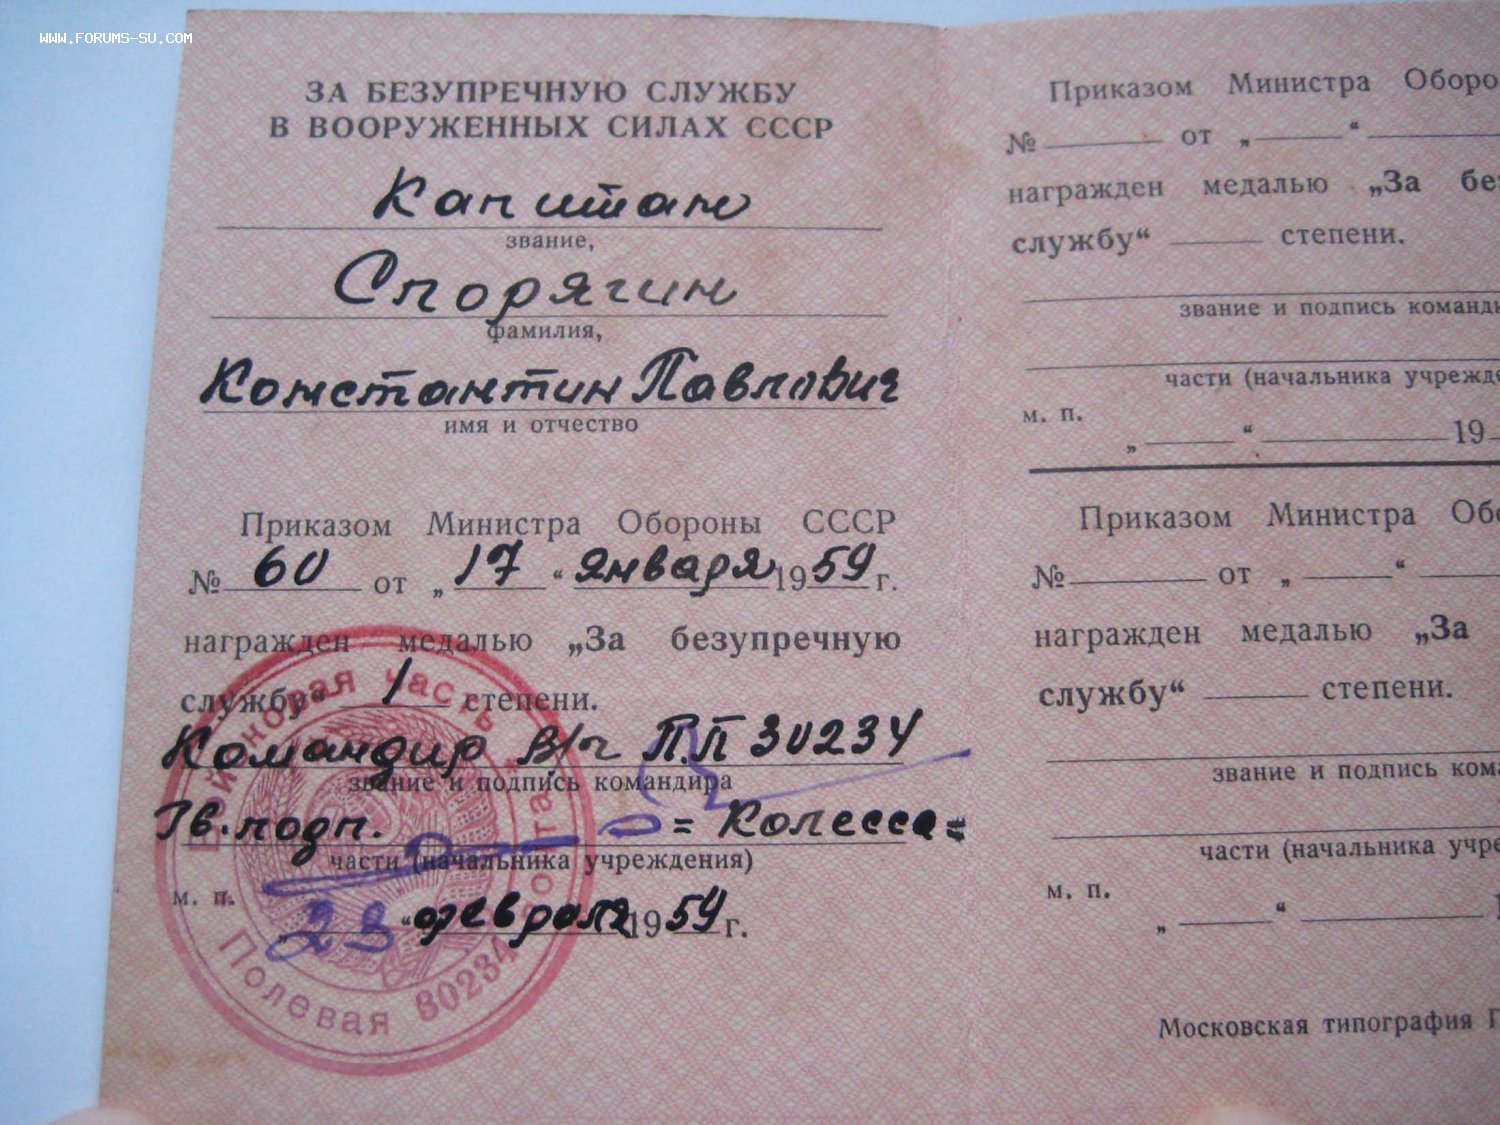 WWW.FORUMS-SU.COM
ЗА БЕЗУПРЕЧНУЮ СЛУЖБУ
В ВООРУЖЕННЫХ СИЛАХ СССР
Капитан
звание,
Спорягин
фамилия,
Константин Павлович
имя и отчество
Приказом Министра Обороны СССР
№ 60 от „ 17 “ января 1959 г.
награжден медалью „За безупречную
службу“ 1 степени.
Командир в/ч П.П 30234
звание и подпись командира
Гв. подп. = Колесса =
части (начальника учреждения)
м. п.
„ 23 “ февраля 1959 г.
Войсковая часть
Полевая почта 30234
Приказом Министра Оборо
№ от „ “
награжден медалью „За бе
службу“ степени.
звание и подпись команди
части (начальника учрежде
м. п.
„ “ 19
Приказом Министра Обо
№ от „ “
награжден медалью „За
службу“ степени.
звание и подпись кома
части (начальника учре
м. п.
„ “ 1
Московская типография